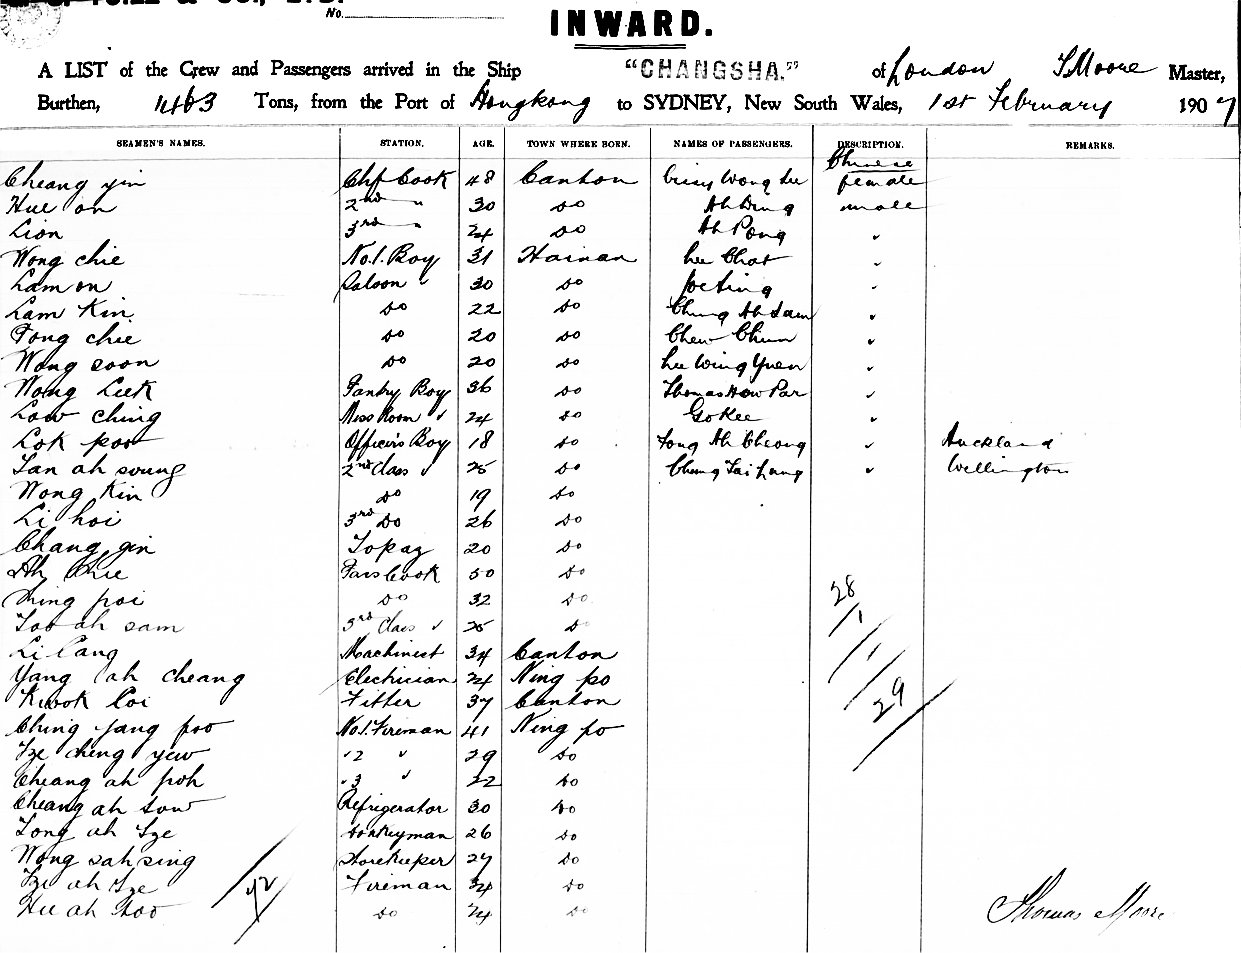 No.
INWARD.
A LIST of the Crew and Passengers arrived in the Ship "CHANGSHA." of London T Moore Master,
Burthen, 1463 Tons, from the Port of Hongkong to SYDNEY, New South Wales, 1st February 1907
SEAMEN'S NAMES. STATION. AGE. TOWN WHERE BORN. NAMES OF PASSENGERS. DESCRIPTION. REMARKS.
Chinese
Cheang yin Chf Cook 48 Canton Cissy Wong Lee female
Hue on 2nd " 30 do Ah Ding male
Lion 3rd " 24 do Ah Pong "
Wong chie No.1. Boy 31 Hainan Lee Chat "
Lam on Saloon " 30 do Joe Ting "
Lam Kin do 22 do Chung Ah Sam "
Tong chie do 20 do Chew Chun "
Wong soon do 20 do Lee Wing Yuen "
Wong Luk Pantry Boy 36 do Thomas How Par "
Low Ching Mess Room " 24 do Go Kee "
Lok poo Officers Boy 18 do Tong Ah Cheong " Auckland
Tan ah soung 2nd Class " 25 do Chung Tai Lung " Wellington
Wong Kin do 19 do
Li hoi 3rd do 26 do
Chang gin Topaz 20 do
Ah 50 do
poi do 32 do
28
Too ah sam 3rd Class " 25 do
1
Li Cang Machinist 34 Canton
1
Yang ah cheang Electrician 24 Ning po
29
Kwok Loi Fitter 37 Canton
Ching yang foo No.1. Fireman 41 Ning po
Tze cheng yew " 2 " 29 do
Cheang ah poh " 3 " 22 do
Cheang ah sow Refrigerator 30 do
Tong ah Tze Donkeyman 26 do
Wong sah sing Storekeeper 27 do
Tze ah Tze Fireman 34 do
42
Hu ah Soo do 24 do
Thomas Moore